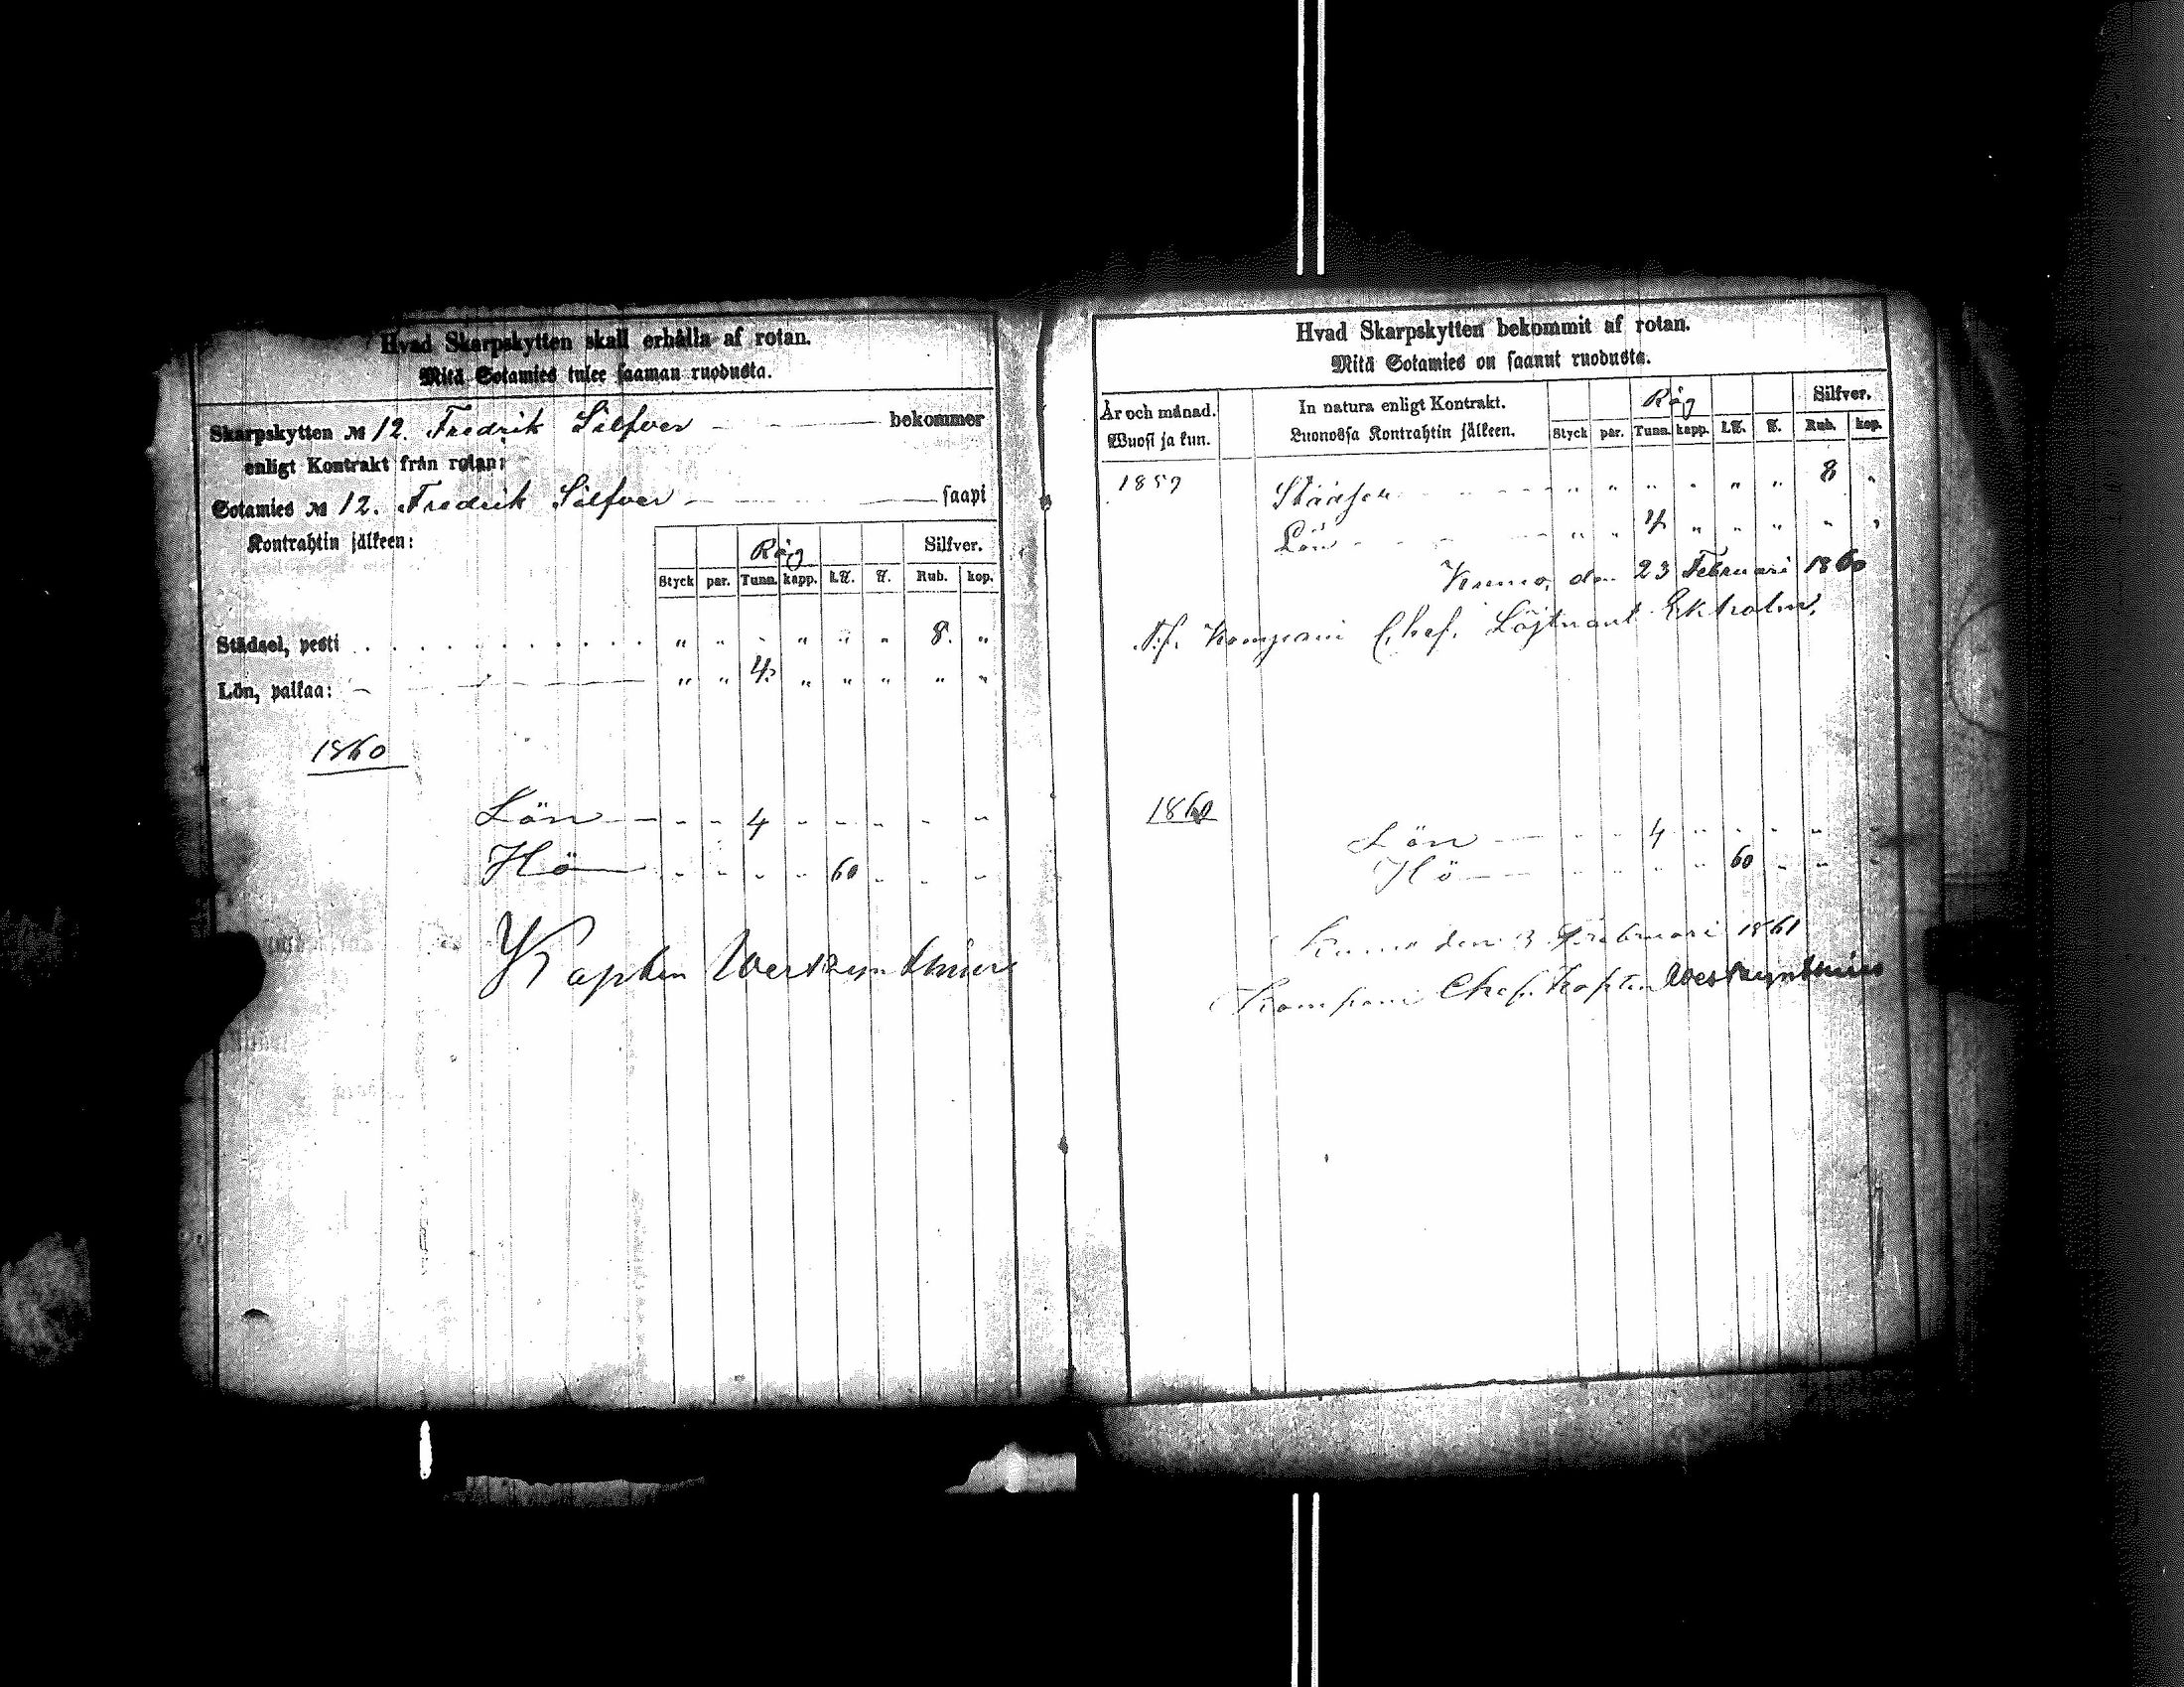 Hvad Skarpskytten skall erhålla af rotan.
Mitä Sotamies tulee saaman ruodusta.
Skarpskytten № 12. Fredrik Silfver bekommer
enligt Kontrakt från rotan:
Sotamies № 12. Fredrik Silfver saapi
Kontrahtin jälkeen:
Råg Silfver.
Styck par. Tunn. kapp. L℔. ℔. Rub. kop.
Städsel, pesti . . . . . . . . . . . . " " " " " " 8. "
Lön, palkaa: " " 4. " " " " "
1860
Lön " " 4 " " " " "
Hö " " " " 60 " " "
Kapten
Hvad Skarpskytten bekommit af rotan.
Mitä Sotamies on saanut ruodusta.
År och månad. In natura enligt Kontrakt. Råg Silfver.
Wuosi ja kun. Luonossa Kontrahtin jälkeen. Styck par. Tunn. kapp. L℔. ℔. Rub. kop.
1859 Städsel " " " " " " 8 "
Lön " " 4 " " " " "
Kumo, den 23 Februari 1860
T.f. Kompani Chef. Löjtnant Ekholm.
1860
Lön " " 4 " " " " "
Hö " " " " 60 " " "
Kumo den 3 Februari 1861
Kompani Chef. Kapten